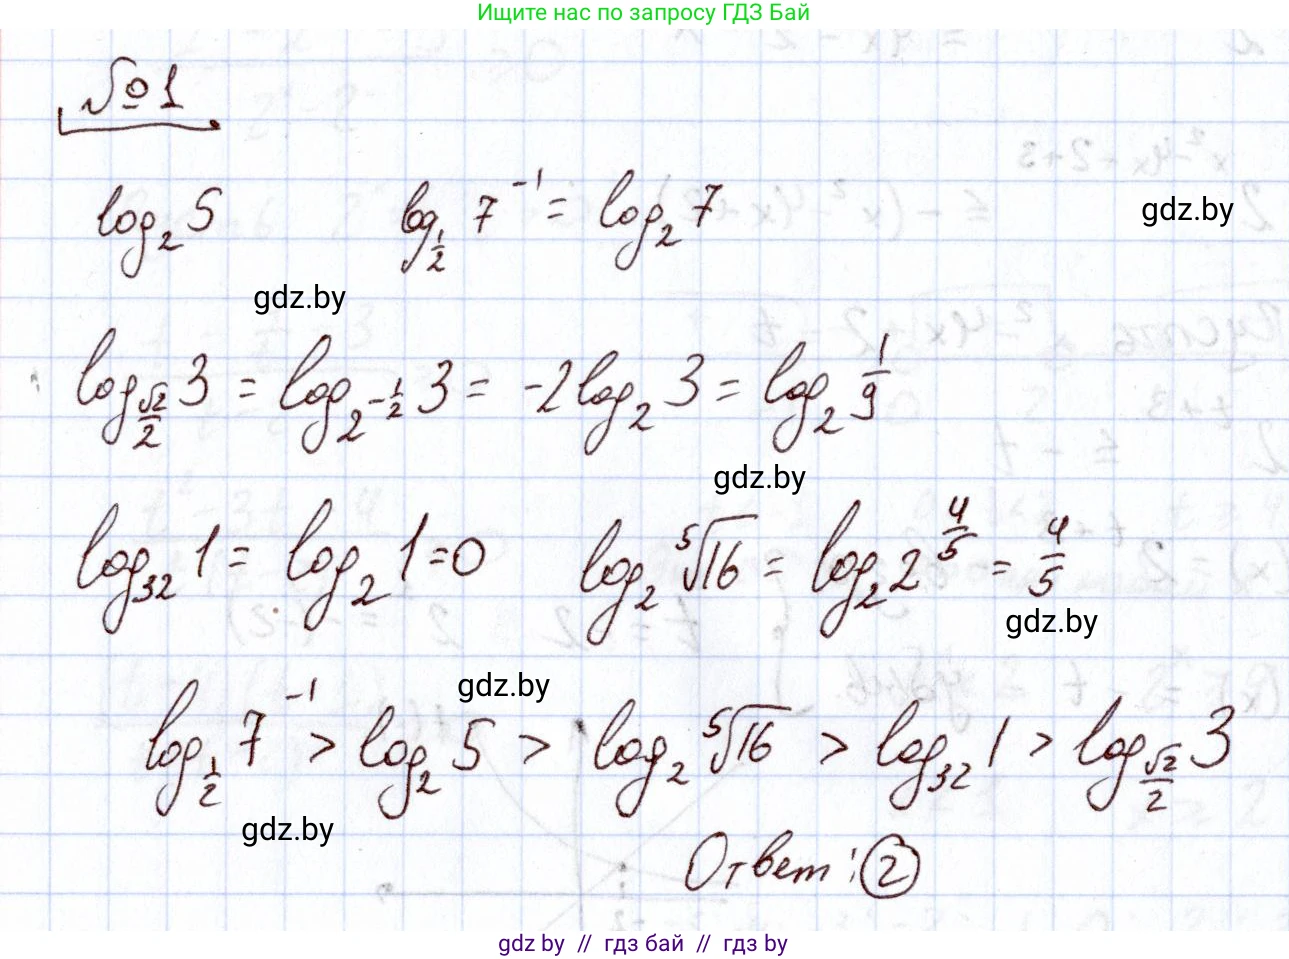 Ищите нас по запросу ГДЗ Бай
№1
log₂ 5    log_{1/2} 7⁻¹ = log₂ 7
gdz.by
gdz.by
log_{√2/2} 3 = log_{2^{-1/2}} 3 = -2log₂ 3 = log₂ 1/9
gdz.by
log₃₂ 1 = log₂ 1 = 0    log₂ ⁵√16 = log₂ 2^{4/5} = 4/5
gdz.by
gdz.by
log_{1/2} 7⁻¹ > log₂ 5 > log₂ ⁵√16 > log₃₂ 1 > log_{√2/2} 3
gdz.by
Ответ: 2
gdz.by // гдз бай // гдз by